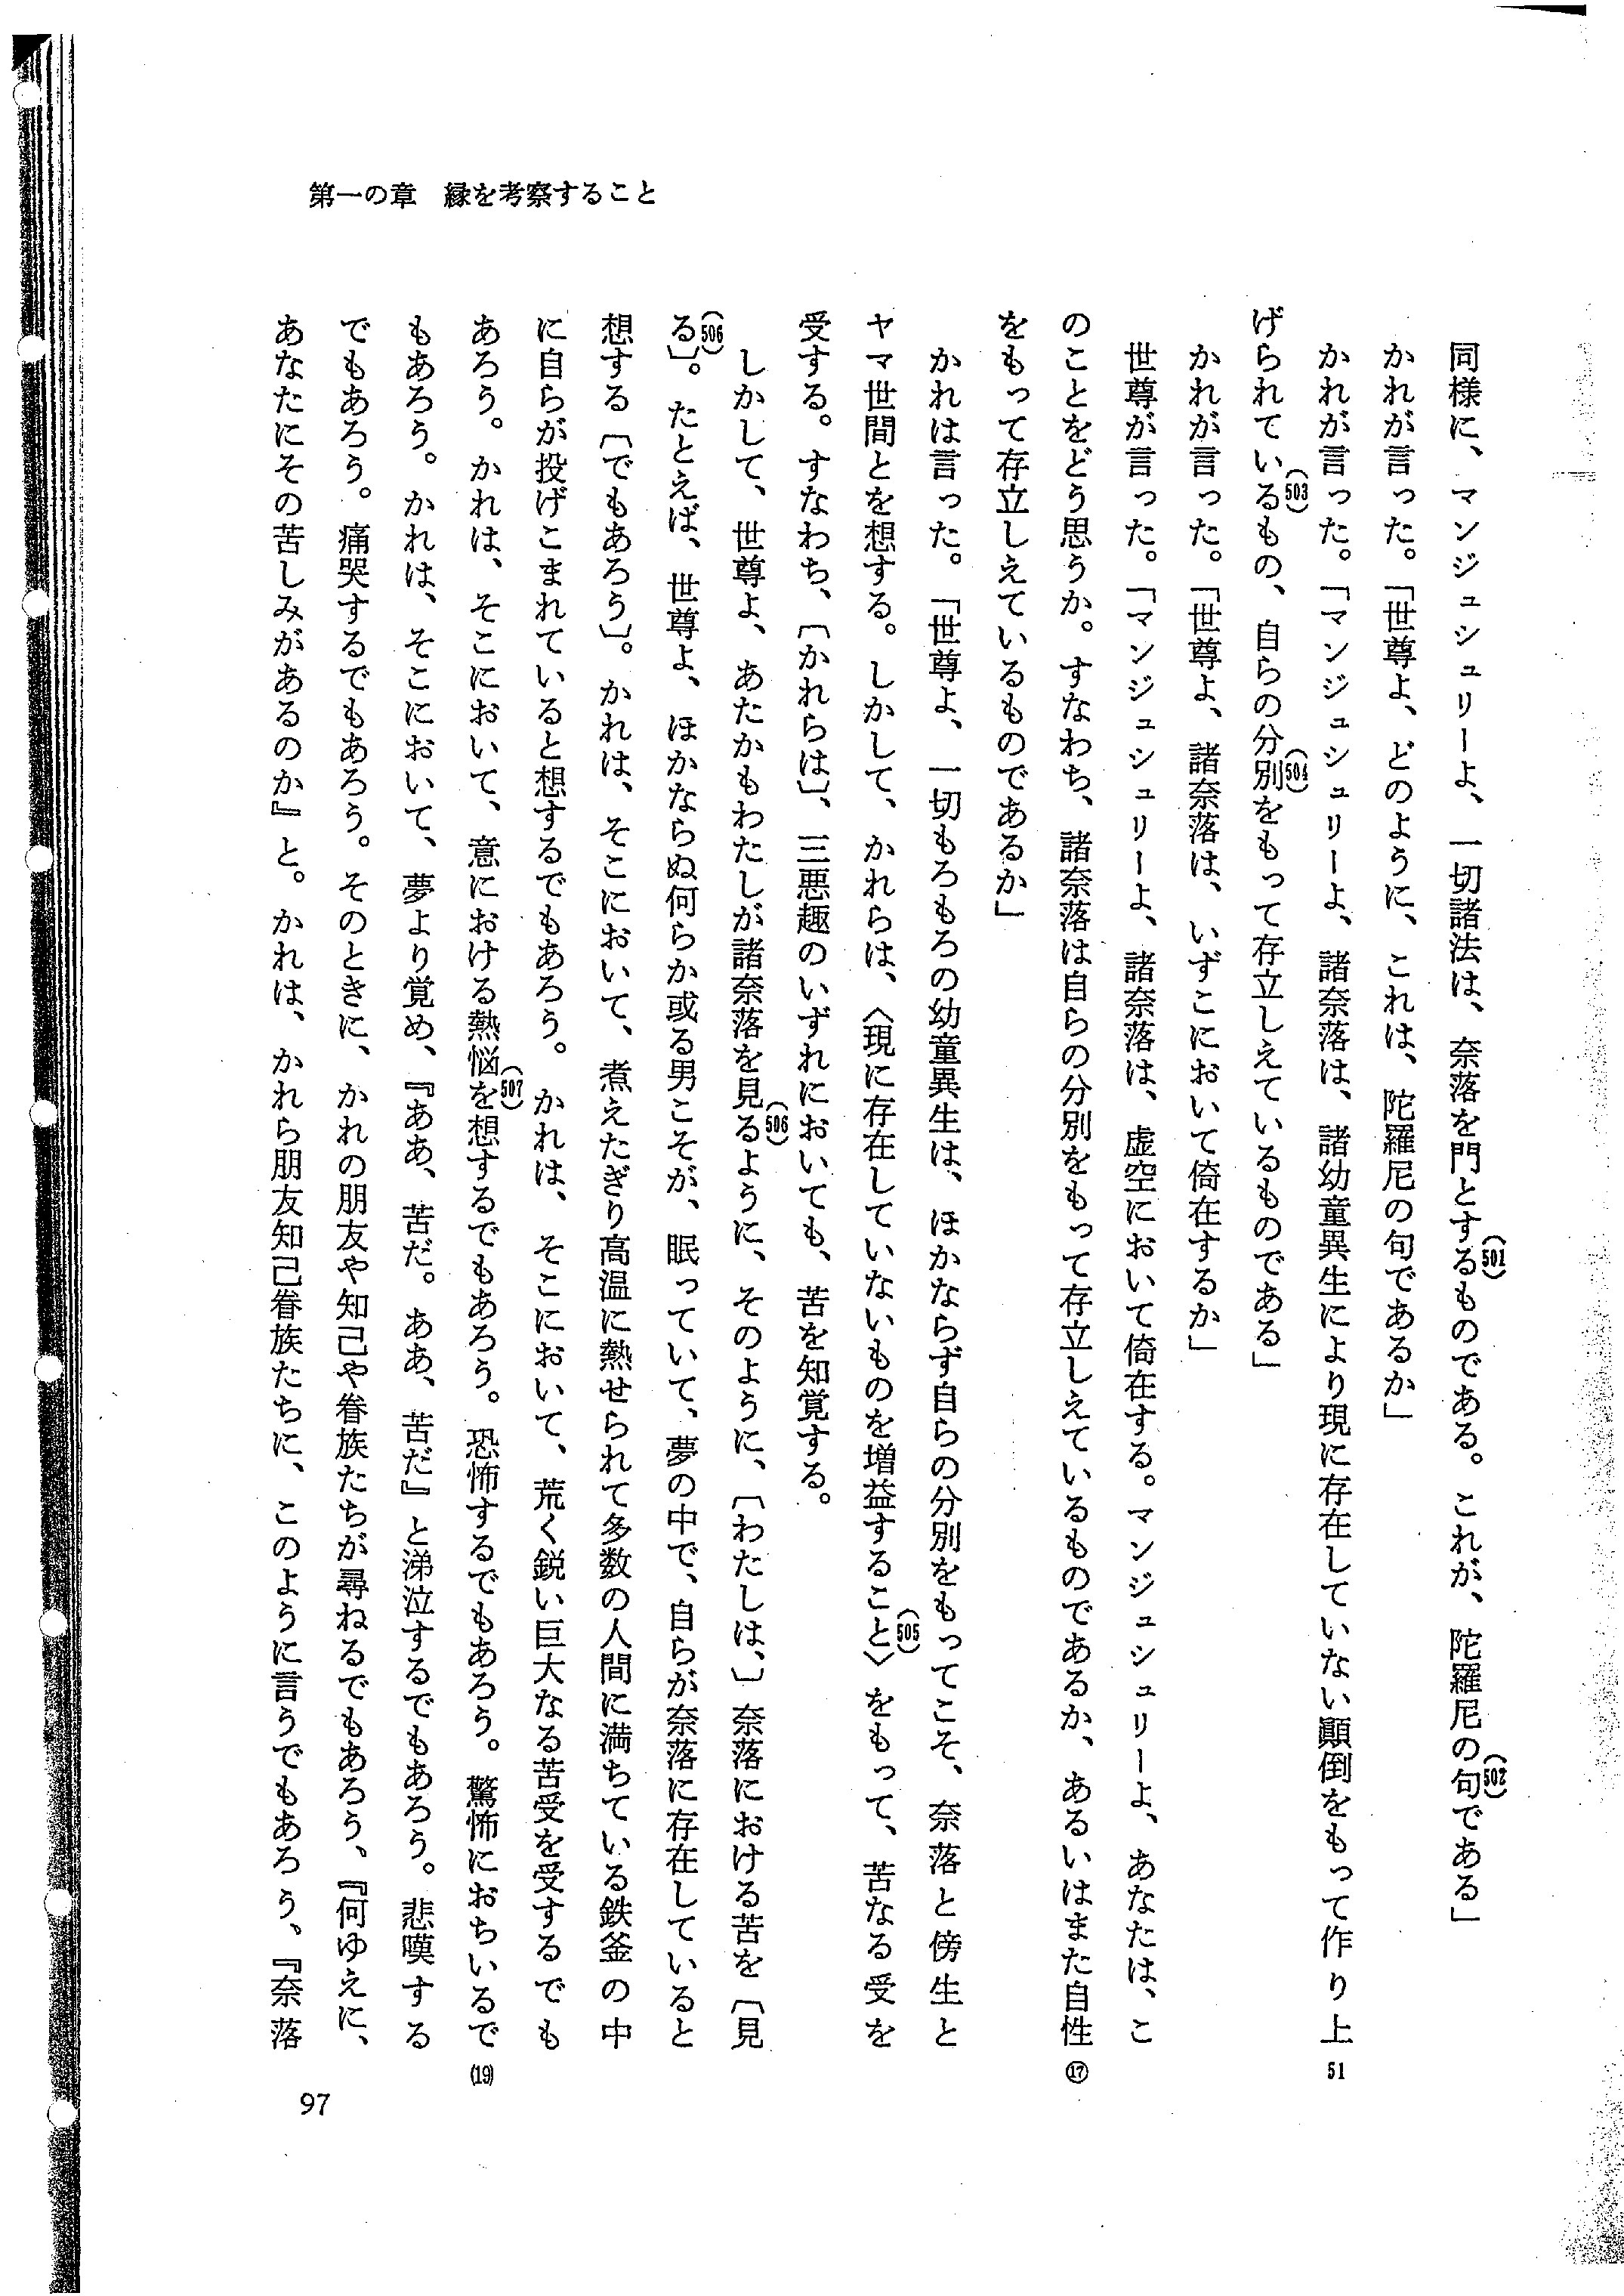 第一の章　縁を考察すること
同様に、マンジュシュリーよ、一切諸法は、奈落を門とする(501)ものである。これが、陀羅尼の句(502)である」
かれが言った。「世尊よ、どのように、これは、陀羅尼の句であるか」
かれが言った。「マンジュシュリーよ、諸奈落は、諸幼童異生により現に存在していない顚倒をもって作り上 51
げられている(503)もの、自らの分別(504)をもって存立しえているものである」
かれが言った。「世尊よ、諸奈落は、いずこにおいて倚在するか」
世尊が言った。「マンジュシュリーよ、諸奈落は、虚空において倚在する。マンジュシュリーよ、あなたは、こ
のことをどう思うか。すなわち、諸奈落は自らの分別をもって存立しえているものであるか、あるいはまた自性 ⑰
をもって存立しえているものであるか」
かれは言った。「世尊よ、一切もろもろの幼童異生は、ほかならず自らの分別をもってこそ、奈落と傍生と
ヤマ世間とを想する。しかして、かれらは、〈現に存在していないものを増益すること(505)〉をもって、苦なる受を
受する。すなわち、〔かれらは〕、三悪趣のいずれにおいても、苦を知覚する。
しかして、世尊よ、あたかもわたしが諸奈落を見る(506)ように、そのように、〔わたしは、〕奈落における苦を〔見
る(506)〕。たとえば、世尊よ、ほかならぬ何らか或る男こそが、眠っていて、夢の中で、自らが奈落に存在していると
想する〔でもあろう〕。かれは、そこにおいて、煮えたぎり高温に熱せられて多数の人間に満ちている鉄釜の中
に自らが投げこまれていると想するでもあろう。かれは、そこにおいて、荒く鋭い巨大なる苦受を受するでも
あろう。かれは、そこにおいて、意における熱悩(507)を想するでもあろう。恐怖するでもあろう。驚怖におちいるで (19)
もあろう。かれは、そこにおいて、夢より覚め、『ああ、苦だ。ああ、苦だ』と涕泣するでもあろう。悲嘆する
でもあろう。痛哭するでもあろう。そのときに、かれの朋友や知己や眷族たちが尋ねるでもあろう、『何ゆえに、
あなたにその苦しみがあるのか』と。かれは、かれら朋友知己眷族たちに、このように言うでもあろう、『奈落
97